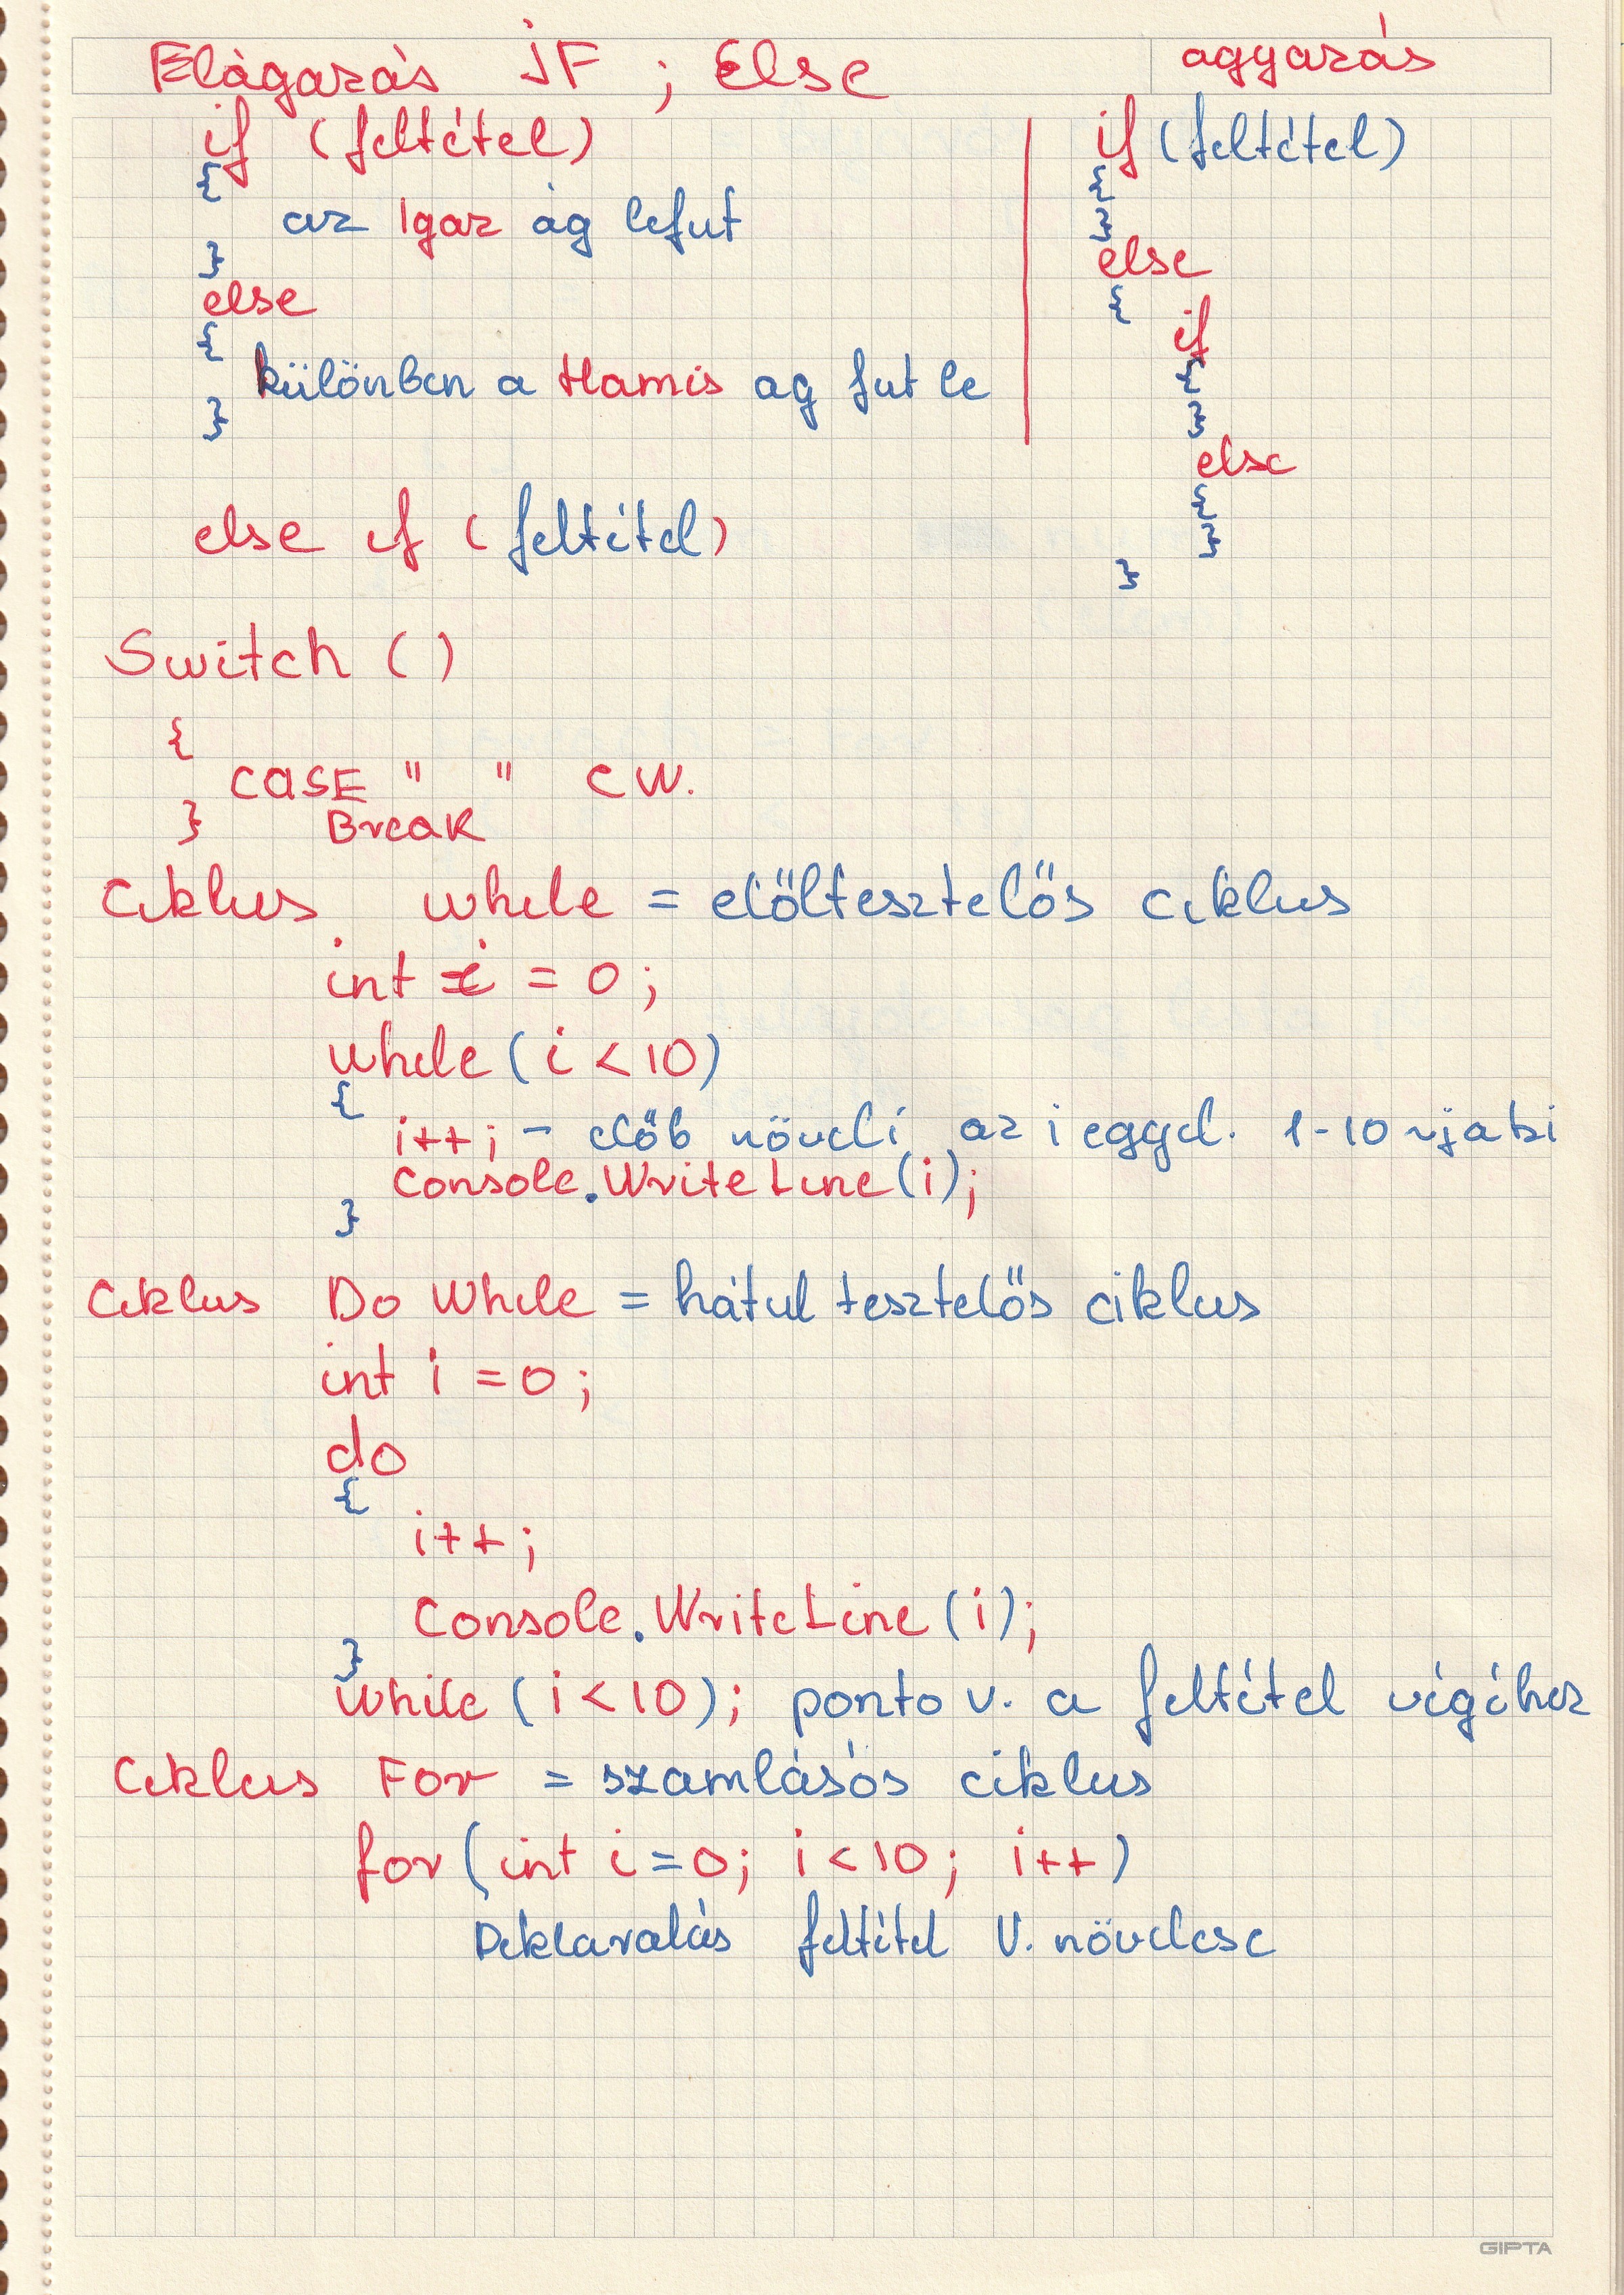 Elágazás if ; Else
if (feltétel)
{
az Igaz ág lefut
}
else
{
különben a Hamis ag fut le
}
else if (feltétel)
agyazás
if (feltétel)
{
}
else
{
if
{
}
else
{
}
}
Switch ()
{
CASE " " CW.
} Break
Ciklus while = előltesztelős ciklus
int i = 0;
while (i < 10)
{
i++; - előb növeli az i eggyel. 1-10 irja ki
Console.WriteLine(i);
}
Ciklus Do While = hátul tesztelős ciklus
int i = 0;
do
{
i++;
Console.WriteLine(i);
}
while (i < 10); ponto v. a feltétel végéhez
Ciklus For = szamlásós ciklus
for (int i=0; i<10; i++)
Deklaralás feltétel V. növelese
GIPTA